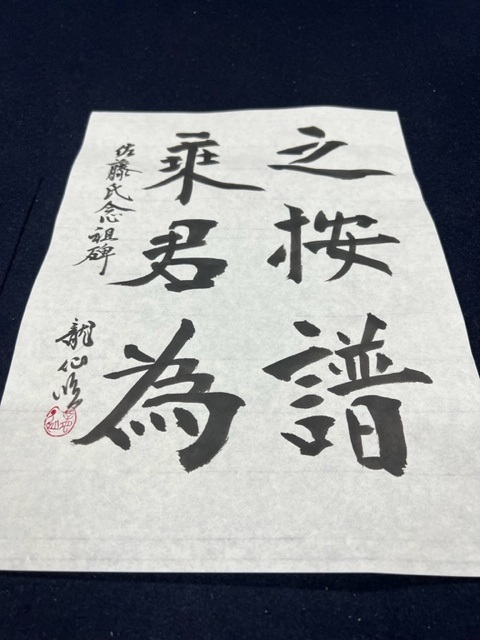 之按譜
乘君為
佐藤氏念祖碑
龍仙臨